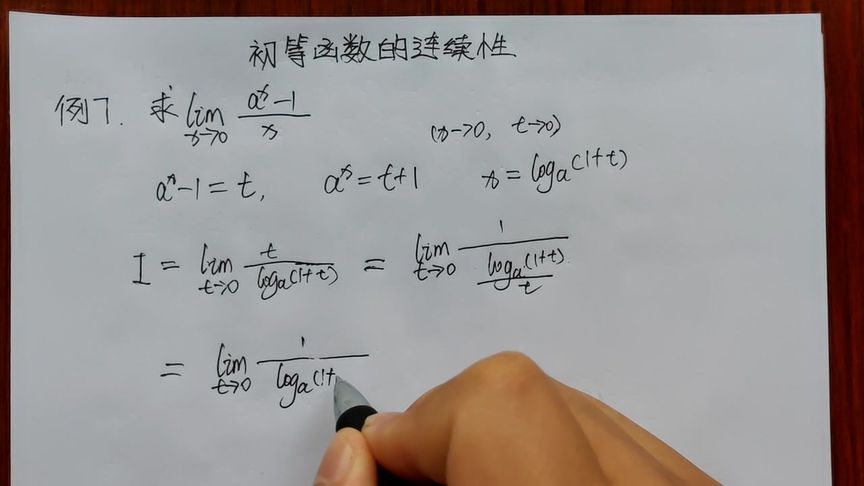 初等函数的连续性
例7. 求 lim x→0 (a^x-1)/x
(x→0, t→0)
a^x-1=t, a^x=t+1 x=log_a(1+t)
I = lim t→0 t/log_a(1+t) = lim t→0 1/(log_a(1+t)/t)
= lim t→0 1/log_a(1+